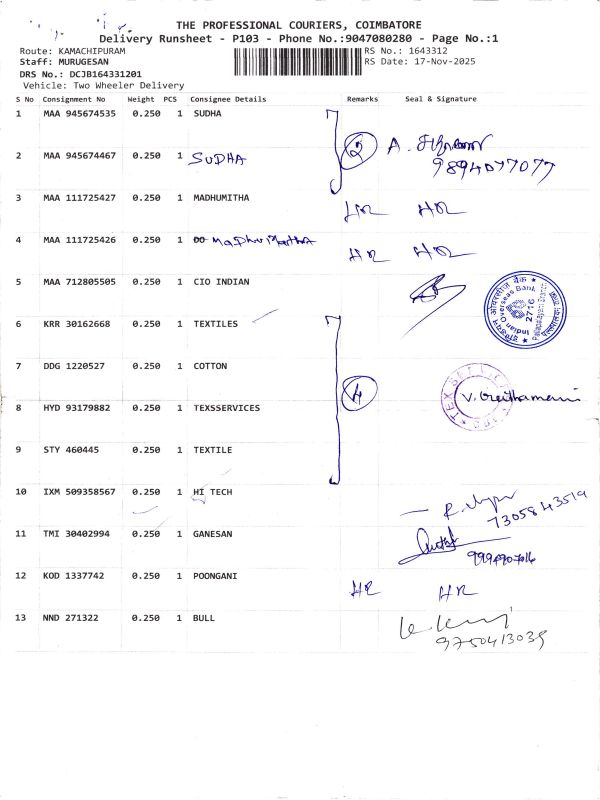 THE PROFESSIONAL COURIERS, COIMBATORE
Delivery Runsheet - P103 - Phone No.:9047080280 - Page No.:1
Route: KAMACHIPURAM RS No.: 1643312
Staff: MURUGESAN RS Date: 17-Nov-2025
DRS No.: DCJB164331201
Vehicle: Two Wheeler Delivery
S No Consignment No Weight PCS Consignee Details Remarks Seal & Signature
1 MAA 945674535 0.250 1 SUDHA
2 MAA 945674467 0.250 1 SUDHA 2 A.
9894077077
3 MAA 111725427 0.250 1 MADHUMITHA HR HR
4 MAA 111725426 0.250 1 HR HR
5 MAA 712805505 0.250 1 CIO INDIAN
Indian Overseas Bank
2716
6 KRR 30162668 0.250 1 TEXTILES
7 DDG 1220527 0.250 1 COTTON
8 HYD 93179882 0.250 1 TEXSSERVICES 4 V.
9 STY 460445 0.250 1 TEXTILE
10 IXM 509358567 0.250 1 HI TECH
7305843519
11 TMI 30402994 0.250 1 GANESAN
12 KOD 1337742 0.250 1 POONGANI HR HR
13 NND 271322 0.250 1 BULL
9750413039